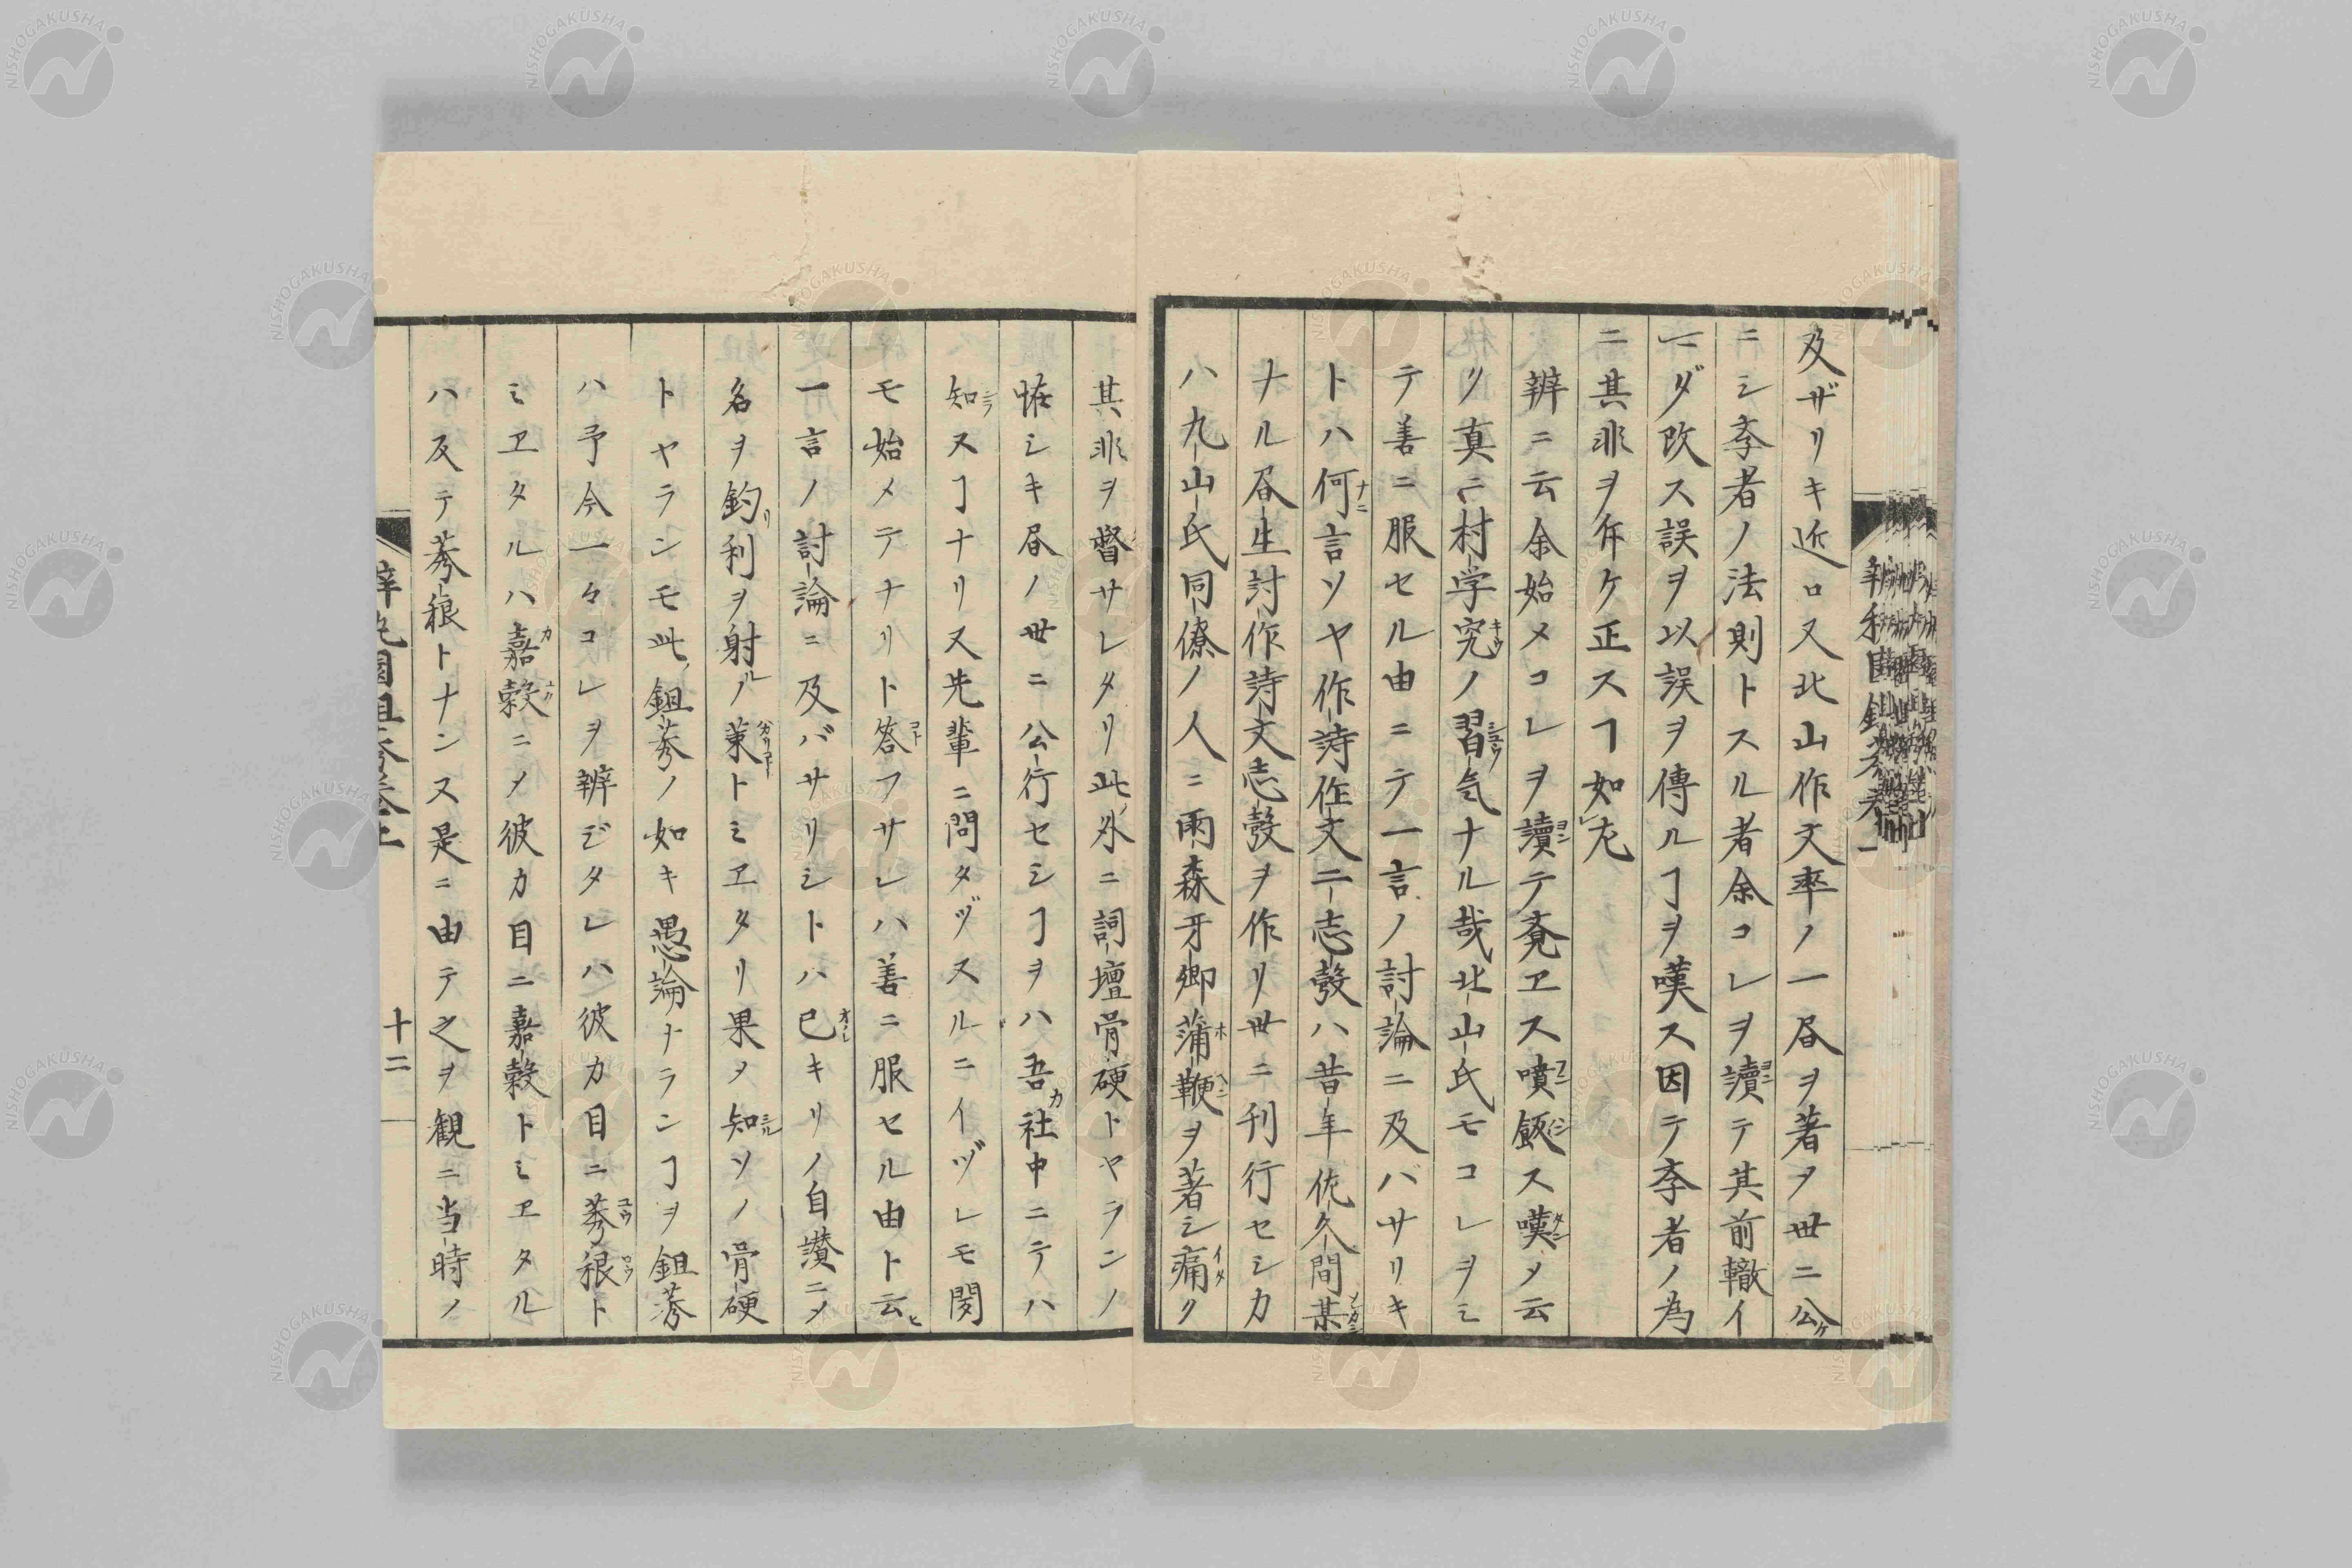 及ザリキ近ロ又北山作文率ノ一昏ヲ著ヲ世ニ公ケ
ニシ李者ノ法則トスル者余コレヲ讀テ其前轍イ
一ダ改ス誤ヲ以誤ヲ傳ルヿヲ嘆ス因テ李者ノ為
ニ其非ヲ斥ケ正スヿ如左
辨ニ云余始メコレヲ讀テ覚ヱス噴飯ス嘆乄云
リ真ニ村学究ノ習気ナル哉北山氏モコレヲミ
テ善ニ服セル由ニテ一言ノ討論ニ及バサリキ
トハ何言ソヤ作詩作文ニ志彀ハ昔年佐久間某
ナル昏生討作詩文志彀ヲ作リ世ニ刊行セシカ
ハ九山氏同僚ノ人ニ雨森牙卿蒲鞭ヲ著シ痛ク
其非ヲ督サレタリ此外ニ詞壇骨硬トヤランノ
恠シキ昏ノ世ニ公行セシヿヲハ吾カ社中ニテハ
知スヿナリ又先輩ニ問タヅスルニイヅレモ関
モ始メテナリト答フサレハ善ニ服セル由ト云ヒ
一言ノ討論ニ及バサリシトハ已キリノ自讃ニ乄
名ヲ釣リ利ヲ射ルノ策トミヱタリ果乄知ソノ骨硬
トヤランモ此鉏莠ノ如キ愚論ナランヿヲ鉏莠
ハ予今一々コレヲ辨ジタレハ彼カ目ニ莠稂ト
ミヱタルハ嘉穀ニ乄彼カ目ニ嘉穀トミヱタル
ハ反テ莠稂トナンヌ是ニ由テ之ヲ観ニ当時ノ
十二